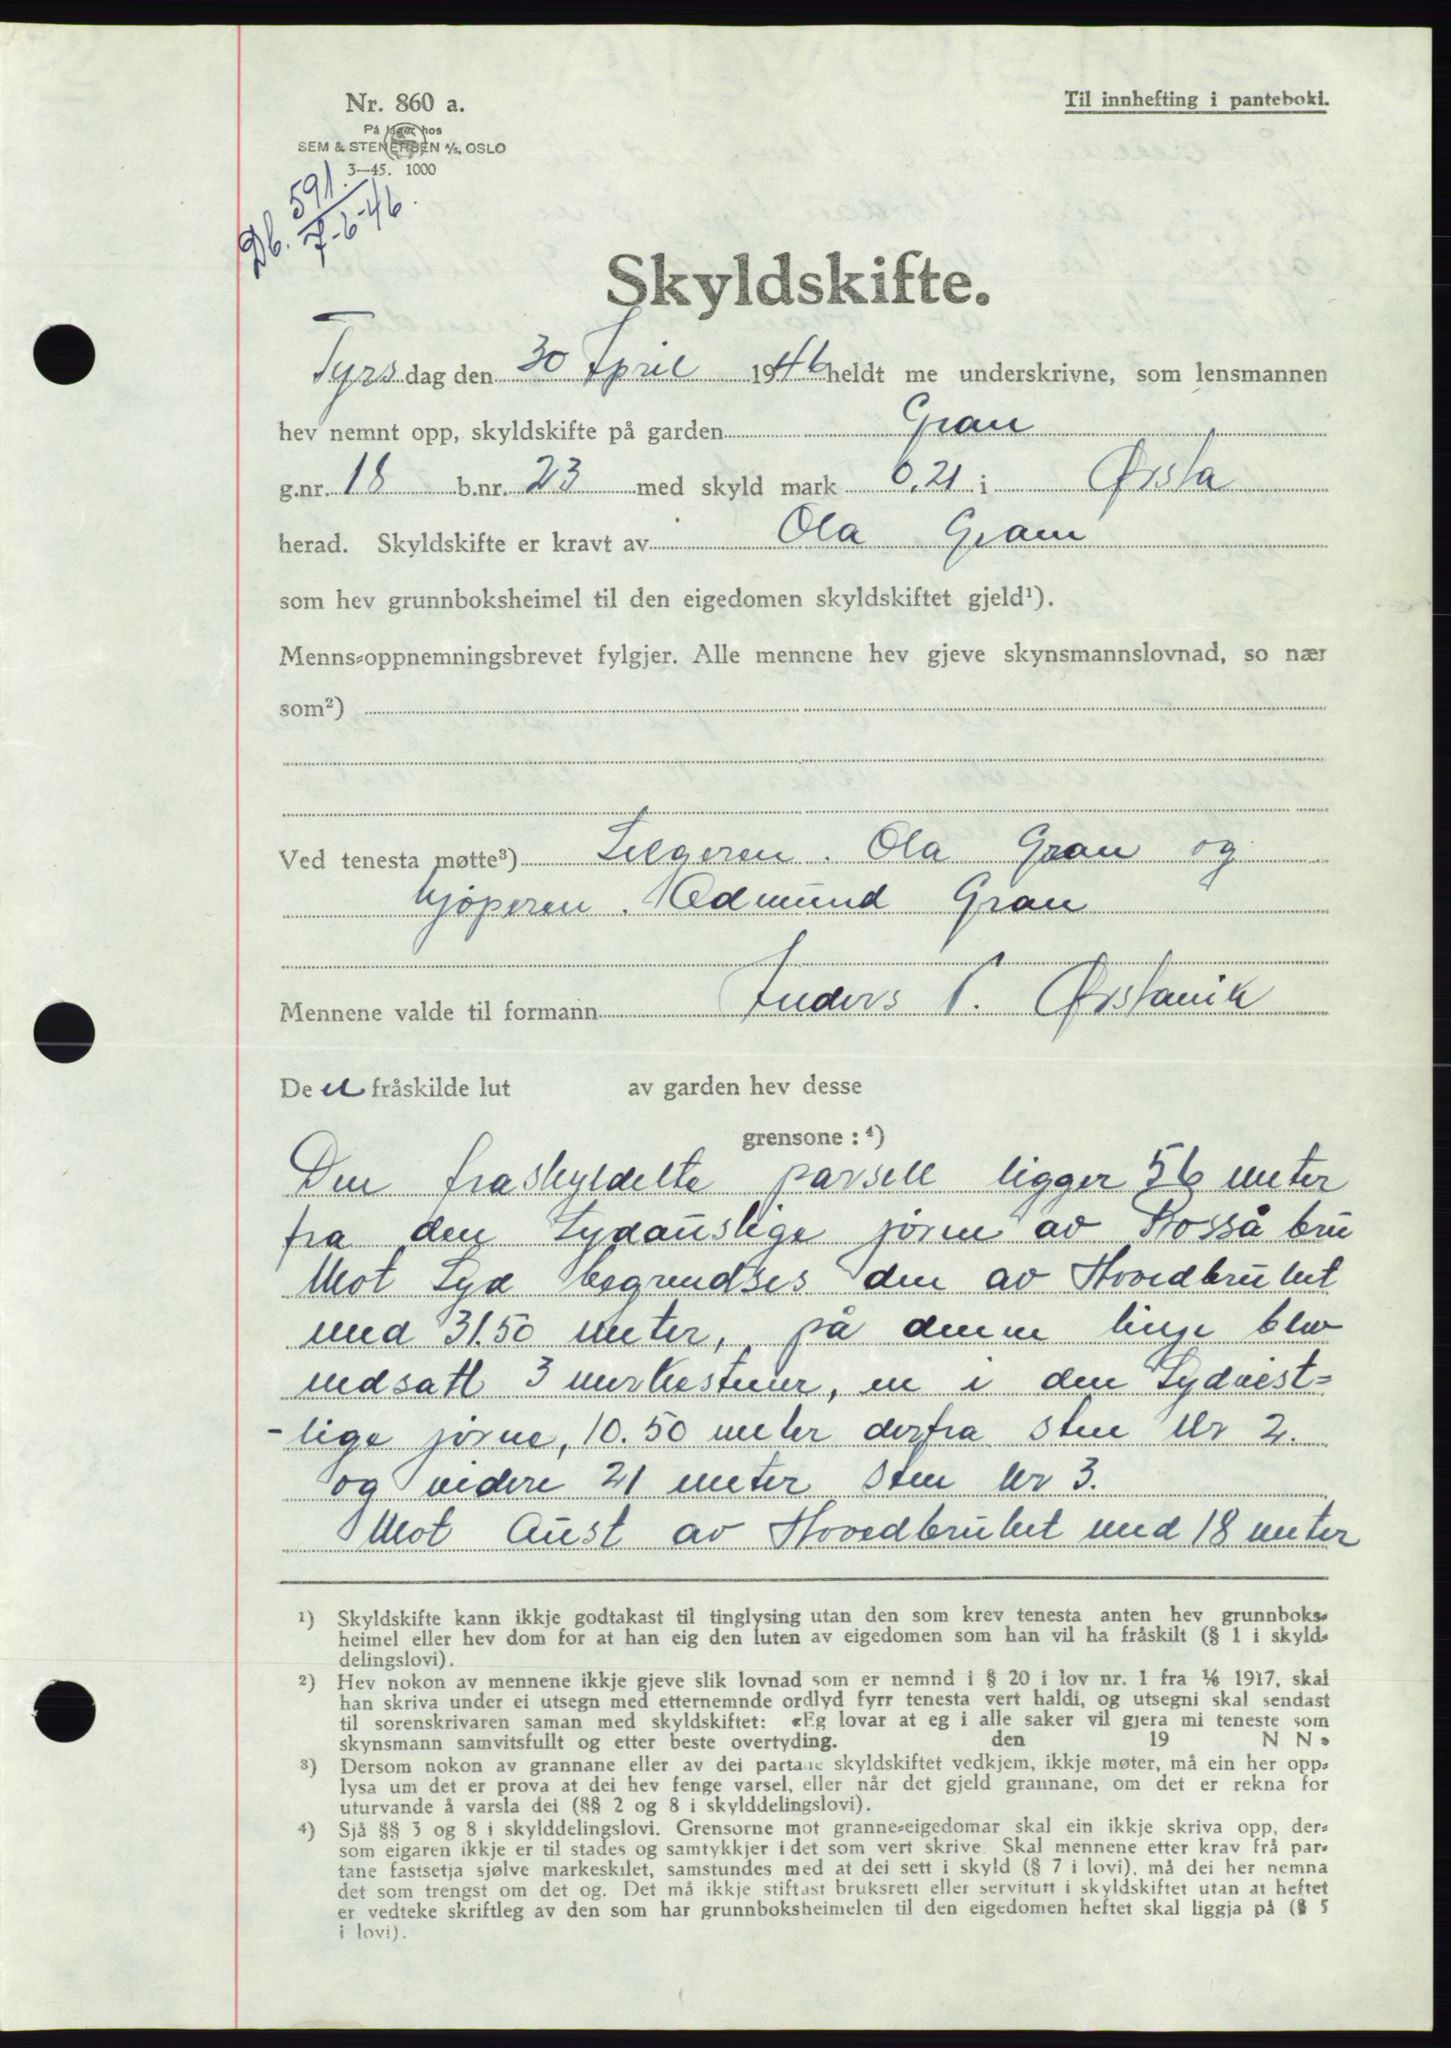 Nr. 860 a.
På lager hos
SEM & STENERSEN A/S, OSLO
3—45. 1000
Til innhefting i panteboki.
Db. 591/7-6-46.
Skyldskifte.
Tyrsdag den 30 April 1946 heldt me underskrivne, som lensmannen
hev nemnt opp, skyldskifte på garden Gran
g.nr. 18 b.nr. 23 med skyld mark 0,21 i Ørsta
herad. Skyldskifte er kravt av Ola Gram
som hev grunnboksheimel til den eigedomen skyldskiftet gjeld¹).
Menns-oppnemningsbrevet fylgjer. Alle mennene hev gjeve skynsmannslovnad, so nær
som²)
Ved tenesta møtte³) Selgeren. Ola Gran og
kjøperen. Odmund Gran
Mennene valde til formann Anders P. Ørstavik
Den fråskilde lut av garden hev desse
grensone: ⁴)
Den fraskyldelte parsell ligger 56 meter
fra den Sydaustlige jørne av Rosså bru
Mot Syd begrendses den av Hovedbruket
med 31.50 meter, på denne linje blev
nedsatt 3 merkestener, en i den Sydvest=
-lige jørne, 10.50 meter derfra sten Nr 2.
og videre 21 meter sten Nr 3.
Mot Aust av Hovedbruket med 18 meter
1) Skyldskifte kann ikkje godtakast til tinglysing utan den som krev tenesta anten hev grunnboks-
heimel eller hev dom for at han eig den luten av eigedomen som han vil ha fråskilt (§ 1 i skyld-
delingslovi).
2) Hev nokon av mennene ikkje gjeve slik lovnad som er nemnd i § 20 i lov nr. 1 fra 1/6 1917, skal
han skriva under ei utsegn med etternemnde ordlyd fyrr tenesta vert haldi, og utsegni skal sendast
til sorenskrivaren saman med skyldskiftet: «Eg lovar at eg i alle saker vil gjera mi teneste som
skynsmann samvitsfullt og etter beste overtyding. den 19 N N»
3) Dersom nokon av grannane eller av dei partane skyldskiftet vedkjem, ikkje møter, må ein her opp-
lysa um det er prova at dei hev fenge varsel, eller når det gjeld grannane, om det er rekna for
uturvande å varsla dei (§§ 2 og 8 i skylddelingslovi).
4) Sjå §§ 3 og 8 i skylddelingslovi. Grensorne mot granne-eigedomar skal ein ikkje skriva opp, der-
som eigaren ikkje er til stades og samtykkjer i det som vert skrive. Skal mennene etter krav frå par-
tane fastsetja sjølve markeskilet, samstundes med at dei sett i skyld (§ 7 i lovi), må dei her nemna
det som trengst om det og. Det må ikkje stiftast bruksrett eller servitutt i skyldskiftet utan at heftet
er vedteke skriftleg av den som har grunnboksheimelen til den eigedomen heftet skal liggja på (§ 5
i lovi).